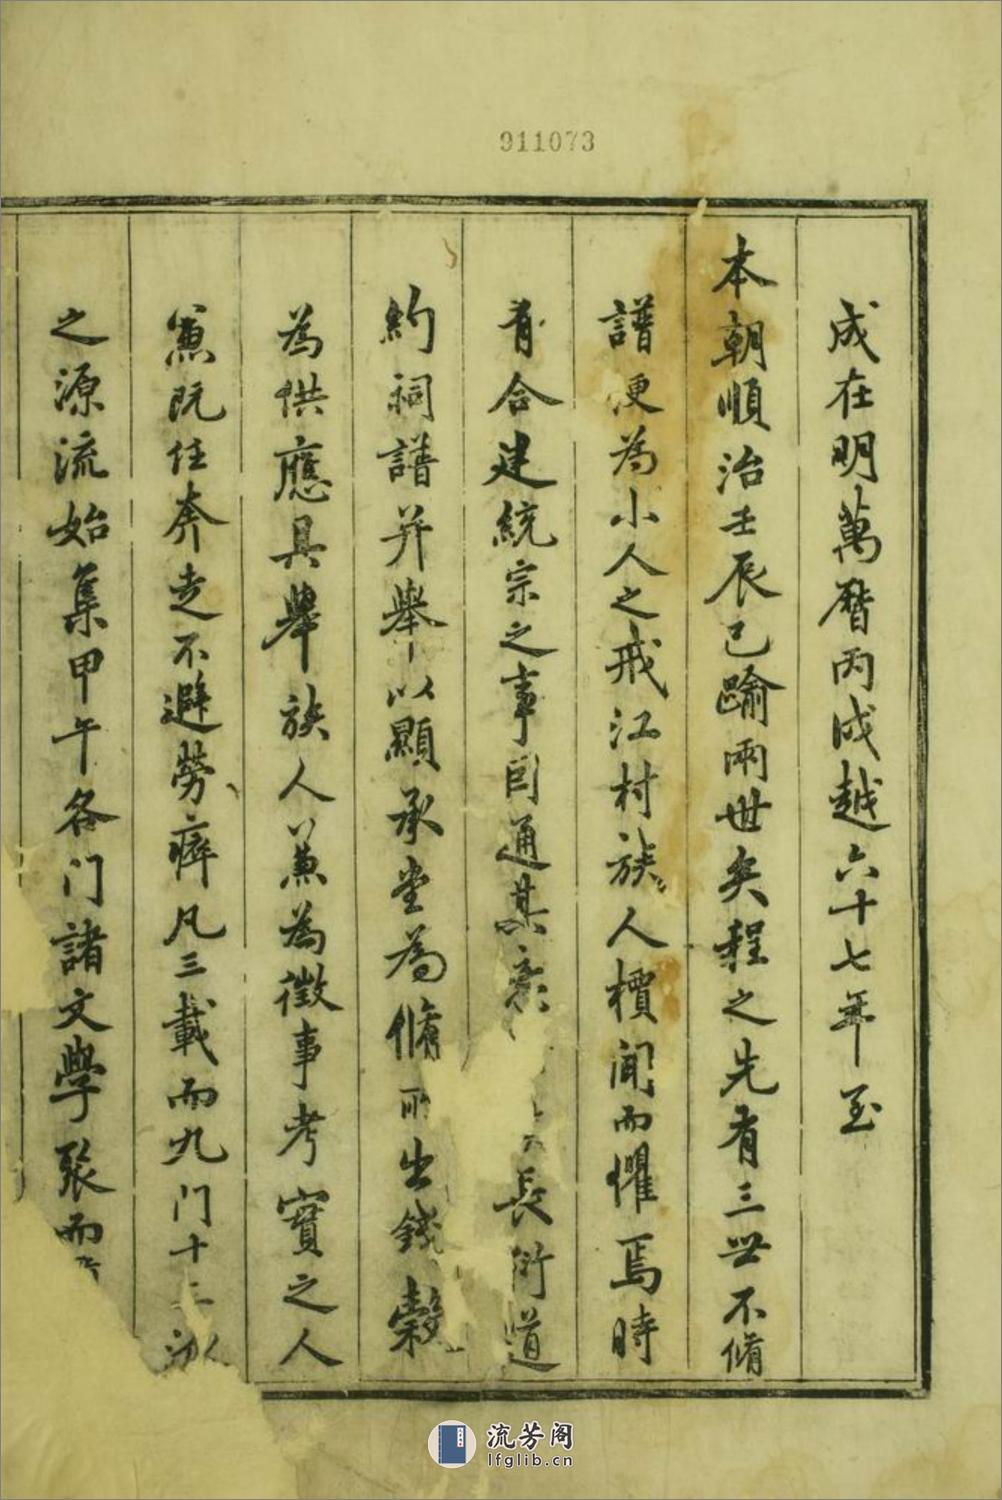 911073
成在明萬曆丙戌越六十七年至
本朝順治壬辰已踰兩世矣程之先有三世不脩
譜便為小人之戒江村族人櫝聞而懼焉時
有合建統宗之事因通其族長衍道
約祠譜并舉以顯承堂為脩所出錢穀
為供應具舉族人兼為徵事考實之人
既任奔走不避勞瘁凡三載而九門十二派
之源流始集甲午各門諸文學張而
流芳阁
lfglib.cn